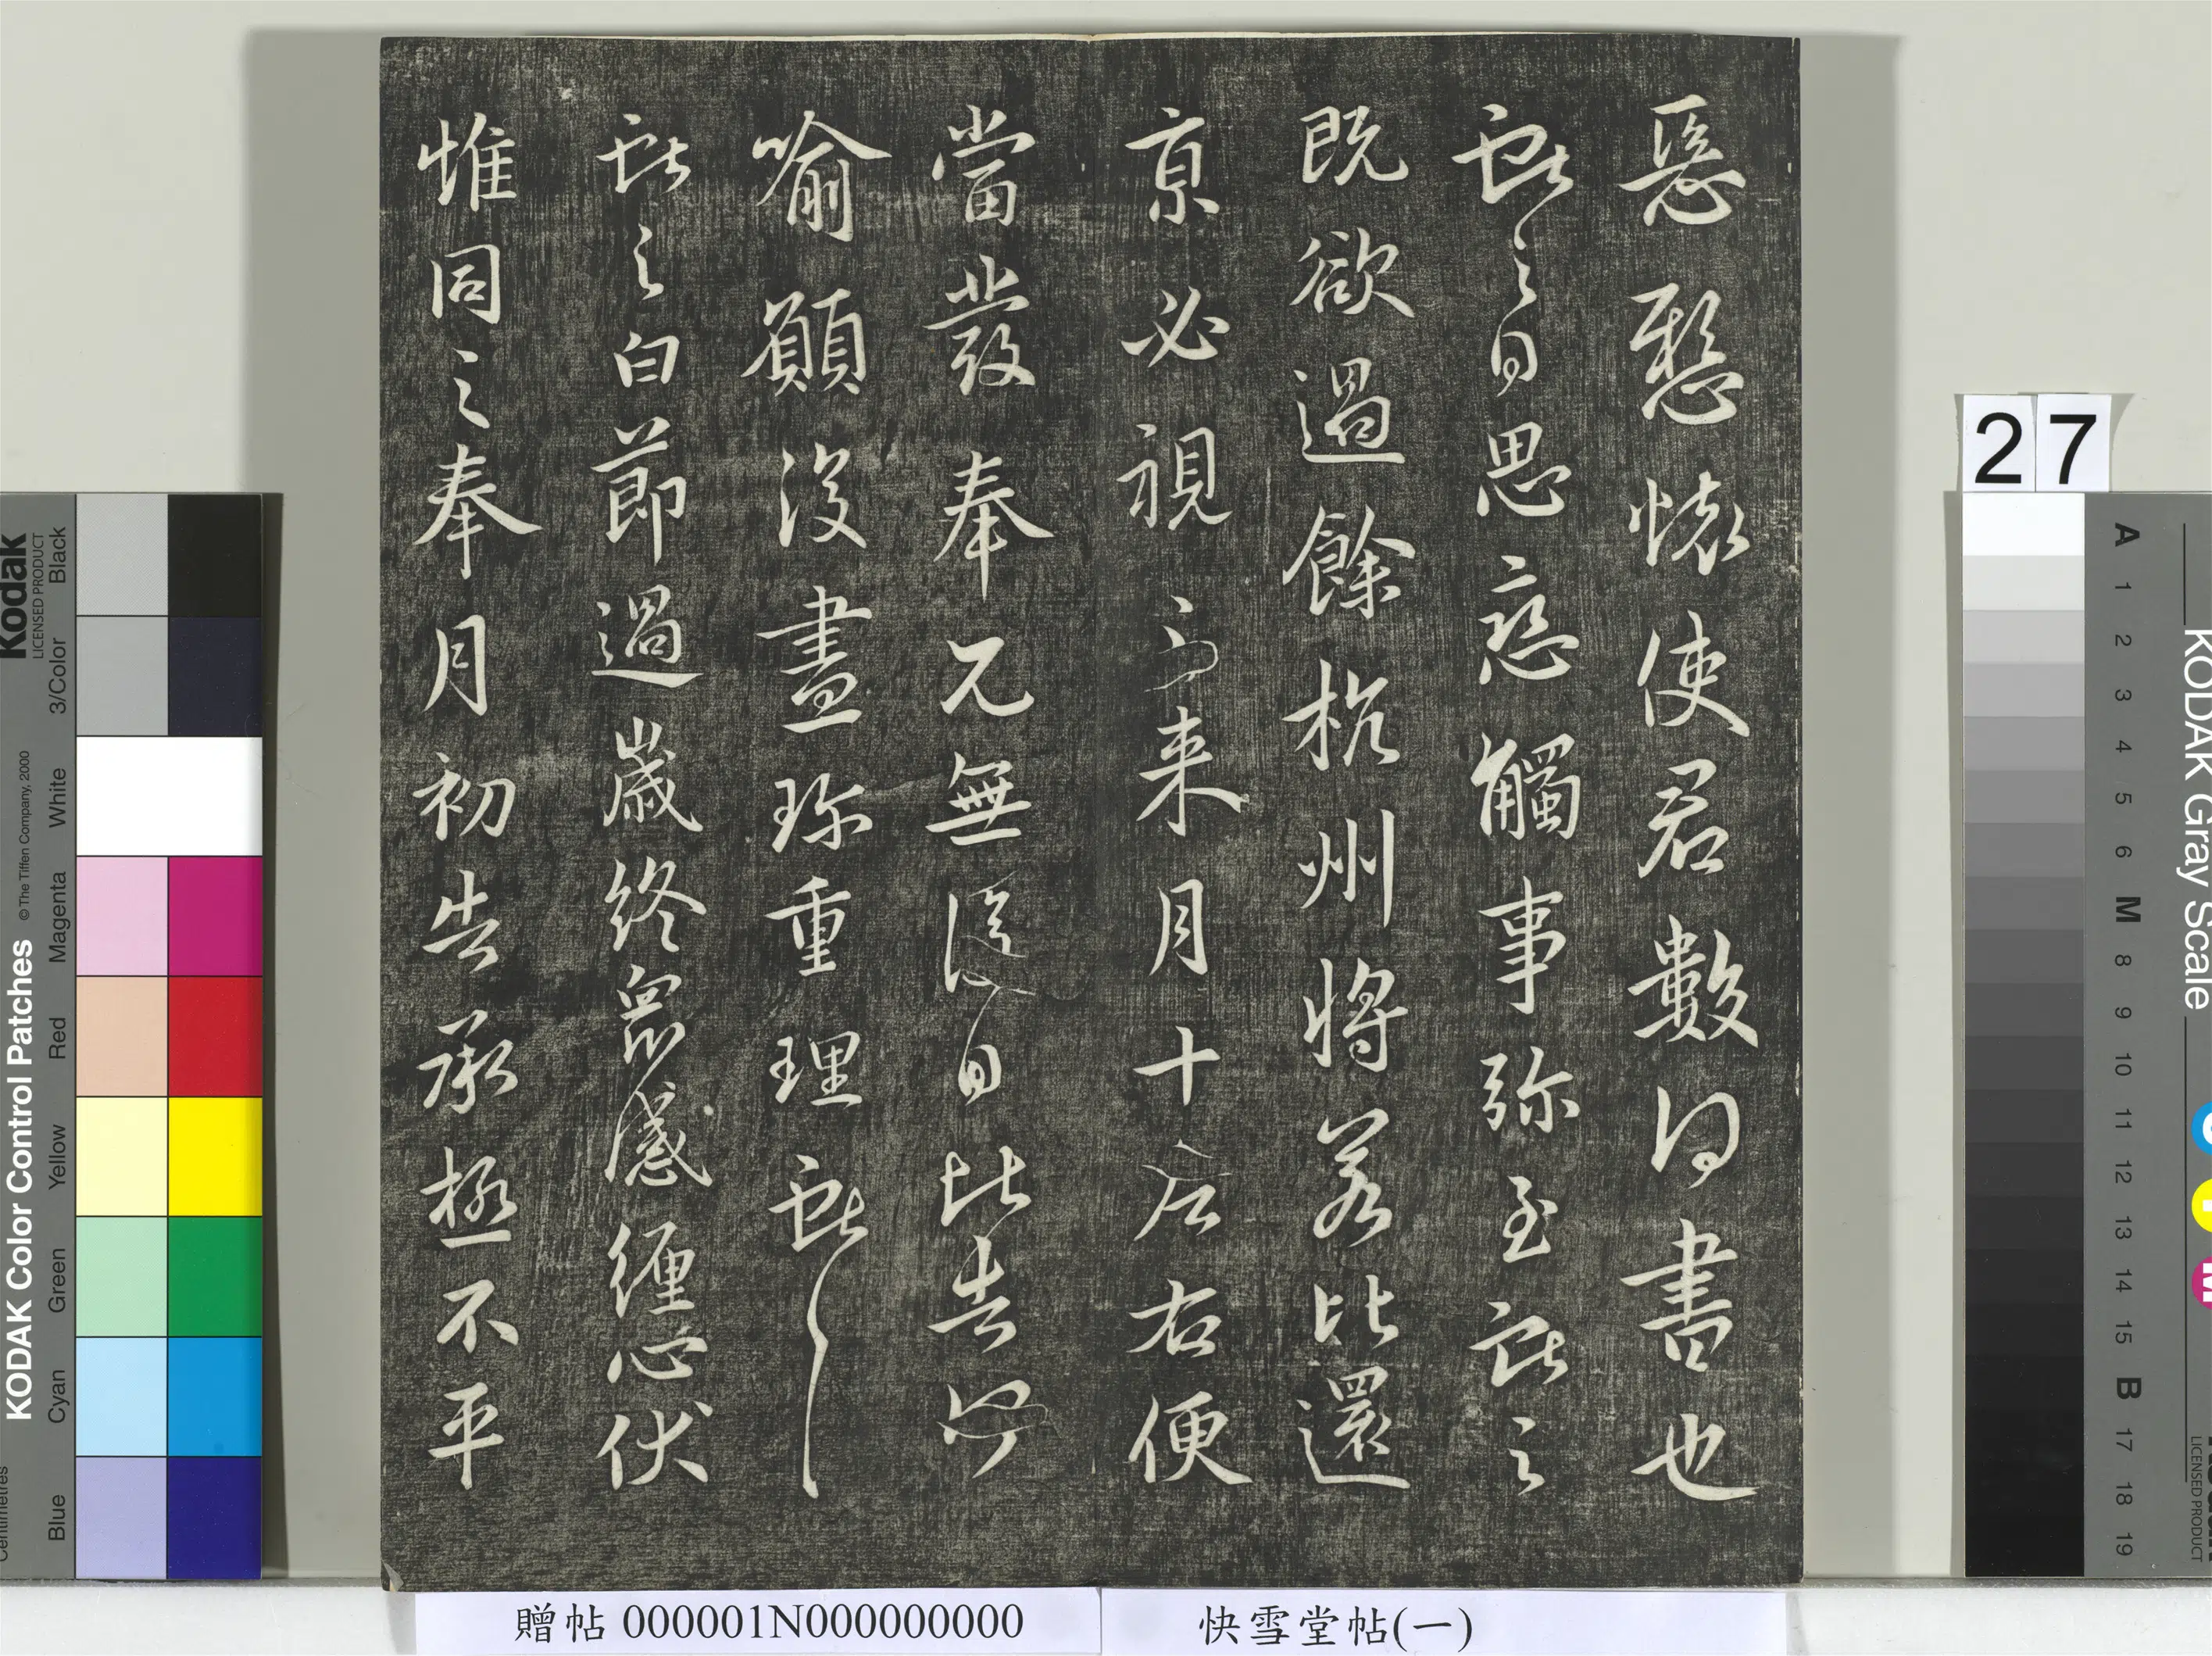 惡懸懷使君數得書也
獻之白思戀觸事弥至獻之
既欲過餘杭州將若比還
京必視之来月十左右便
當發奉兄無復日比告何
喻願復盡珎重理獻之
獻之白節過歲終眾感纏心伏
惟同之奉月初告承極不平
27
贈帖 000001N000000000
快雪堂帖(一)
KODAK Color Control Patches
© The Tiffen Company, 2000
Kodak
LICENSED PRODUCT
Centimetres
Blue
Cyan
Green
Yellow
Red
Magenta
White
3/Color
Black
KODAK Gray Scale
A 1 2 3 4 5 6 M 8 9 10 11 12 13 14 15 B 17 18 19